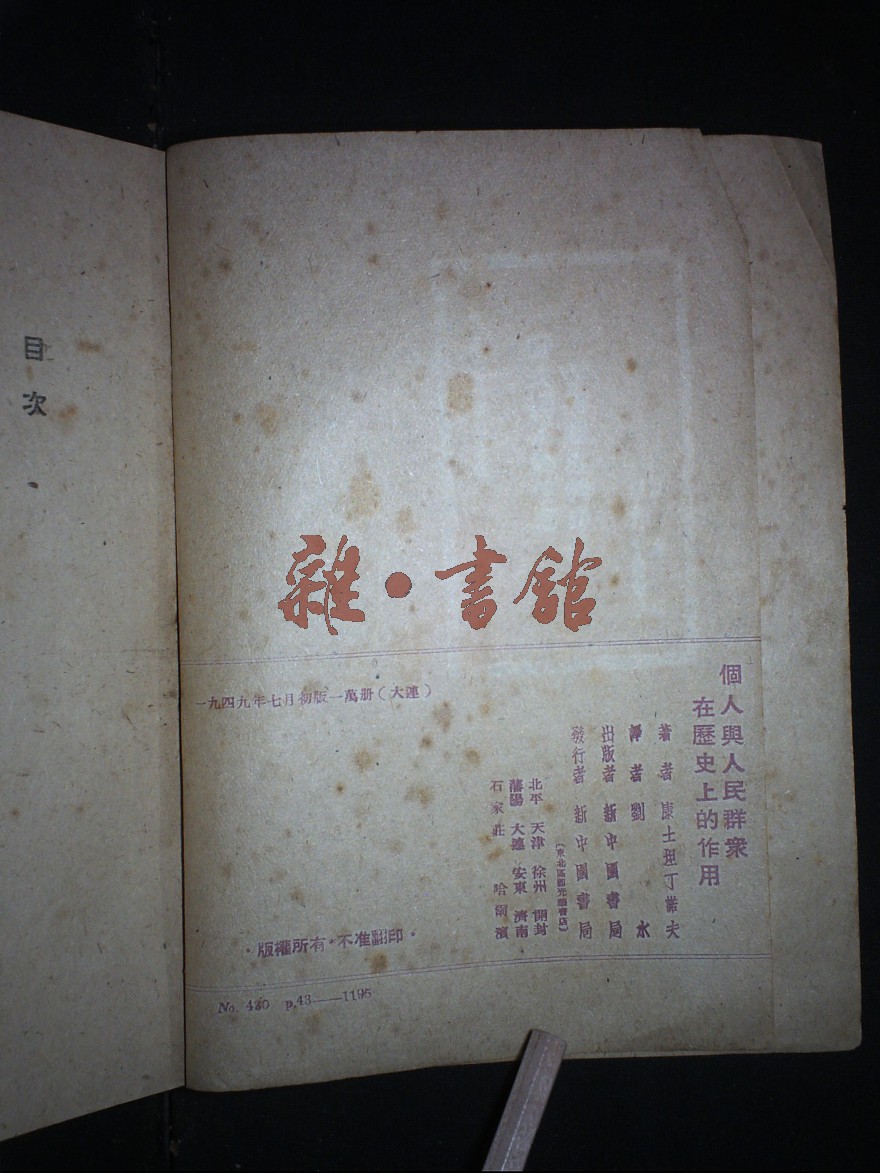 目次
雜·書館
個人與人民群衆
在歷史上的作用
著者 康士坦丁諾夫
譯者 劉水
出版者 新中國書局
發行者 新中國書局
(東北區即光華書店)
北平 天津 徐州 開封
瀋陽 大連 安東 濟南
石家莊 哈爾濱
一九四九年七月初版一萬册(大連)
·版權所有·不准翻印·
No. 430 p.43——1195